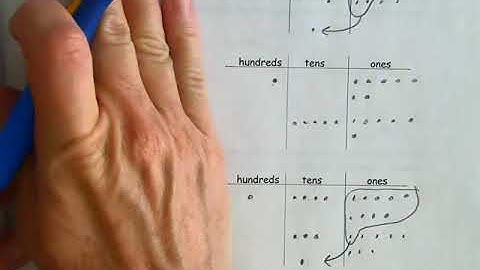 hundreds tens ones
hundreds tens ones